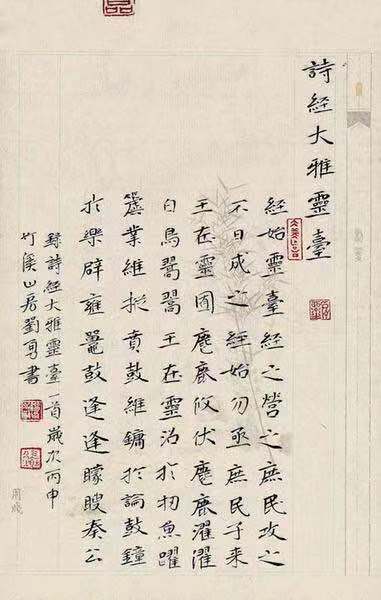 詩經大雅靈臺
經始靈臺經之營之庶民攻之
不日成之經始勿亟庶民子來
王在靈囿麀鹿攸伏麀鹿濯濯
白鳥翯翯王在靈沼於牣魚躍
虡業維樅賁鼓維鏞於論鼓鐘
於樂辟雍鼉鼓逢逢矇瞍奏公
錄詩經大雅靈臺一首歲次丙申
竹溪山居劉勇書